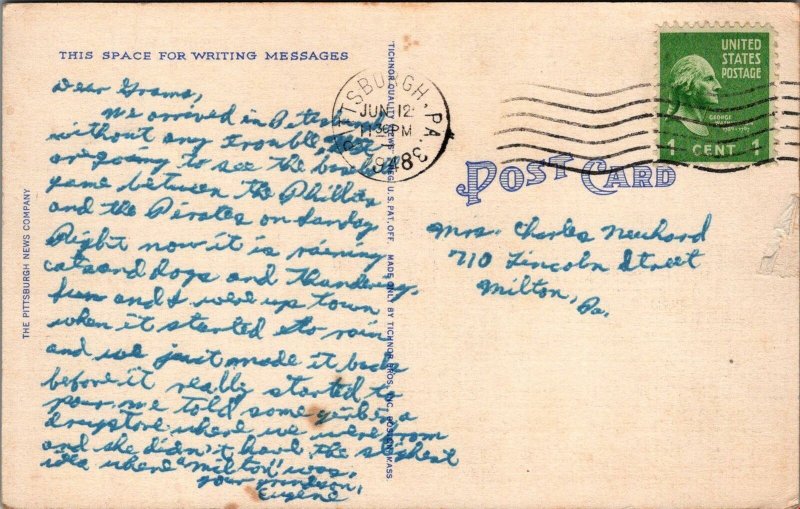 THIS SPACE FOR WRITING MESSAGES
Dear Grama,
We arrived in
without any trouble
going to see the
game between the Phillies
and the Pirates on Sunday
Right now it is raining
cats and dogs and thundering.
and I were up town
when it started to rain
and we just made it back
before it really started to
pour. we told some in a
drugstore where we were from
and she didn't have the slightest
idea where "Milton" was.
your grandson,
Eugene
THE PITTSBURGH NEWS COMPANY
MADE ONLY BY TICHNOR BROS., INC., BOSTON, MASS.
PITTSBURGH, PA.
JUN 12
11 30 PM
1948
UNITED
STATES
POSTAGE
GEORGE
1 CENT 1
POST CARD
Mrs. Charles Neuhard
710 Lincoln Street
Milton,
Pa.